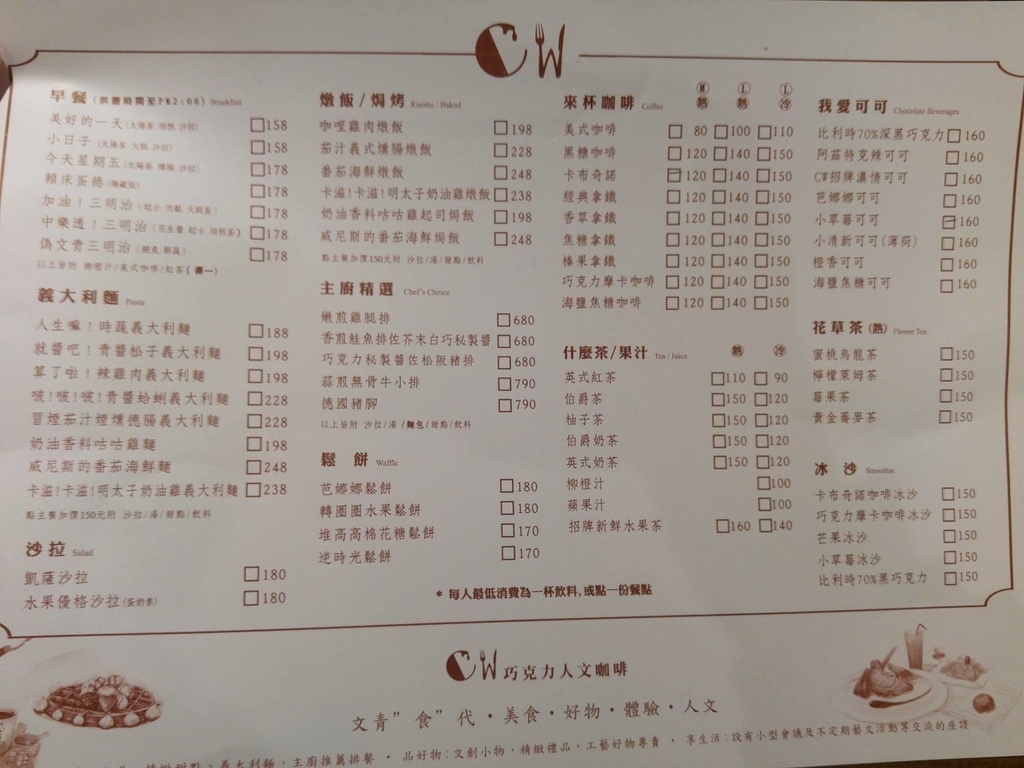 CW
早餐(供應時間至PM2:00) Breakfast
美好的一天(太陽蛋 培根 沙拉) 158
小日子(太陽蛋 火腿 沙拉) 158
今天星期五(太陽蛋 燻腸 沙拉) 178
賴床蛋捲(隱藏版) 178
加油!三明治(起士 肉鬆 火腿蛋) 178
中樂透!三明治(花生醬 起士 培根蛋) 178
偽文青三明治(鮪魚 鮮蔬) 178
以上皆附 柳橙汁/美式咖啡/紅茶(擇一)
義大利麵 Pasta
人生嘛!時蔬義大利麵 188
就醬吧!青醬松子義大利麵 198
算了啦!辣雞肉義大利麵 198
啵!啵!啵!青醬蛤蜊義大利麵 228
冒煙茄汁煙燻德腸義大利麵 228
奶油香料咕咕雞麵 198
威尼斯的番茄海鮮麵 248
卡滋!卡滋!明太子奶油雞義大利麵 238
點主餐加價150元附 沙拉/湯/甜點/飲料
沙拉 Salad
凱薩沙拉 180
水果優格沙拉(蛋奶素) 180
燉飯/焗烤 Risotto / Baked
咖哩雞肉燉飯 198
茄汁義式燻腸燉飯 228
番茄海鮮燉飯 248
卡滋!卡滋!明太子奶油雞燉飯 238
奶油香料咕咕雞起司焗飯 198
威尼斯的番茄海鮮焗飯 248
點主餐加價150元附 沙拉/湯/甜點/飲料
主廚精選 Chef's Choice
嫩煎雞腿排 680
香煎鮭魚排佐芥末白巧秘製醬 680
巧克力秘製醬佐松阪豬排 680
蒜煎無骨牛小排 790
德國豬腳 790
以上皆附 沙拉/湯/麵包/甜點/飲料
鬆 餅 Waffle
芭娜娜鬆餅 180
轉圈圈水果鬆餅 180
堆高高棉花糖鬆餅 170
逆時光鬆餅 170
來杯咖啡 Coffee M熱 L熱 L冷
美式咖啡 80 100 110
黑糖咖啡 120 140 150
卡布奇諾 120 140 150
經典拿鐵 120 140 150
香草拿鐵 120 140 150
焦糖拿鐵 120 140 150
榛果拿鐵 120 140 150
巧克力摩卡咖啡 120 140 150
海鹽焦糖咖啡 120 140 150
什麼茶/果汁 Tea / Juice 熱 冷
英式紅茶 110 90
伯爵茶 150 120
柚子茶 150 120
伯爵奶茶 150 120
英式奶茶 150 120
柳橙汁 100
蘋果汁 100
招牌新鮮水果茶 160 140
我愛可可 Chocolate Beverages
比利時70%深黑巧克力 160
阿茲特克辣可可 160
CW招牌濃情可可 160
芭娜娜可可 160
小草莓可可 160
小清新可可(薄荷) 160
橙香可可 160
海鹽焦糖可可 160
花草茶(熱) Flower Tea
蜜桃烏龍茶 150
檸檬萊姆茶 150
莓果茶 150
黃金蕎麥茶 150
冰 沙 Smoothie
卡布奇諾咖啡冰沙 150
巧克力摩卡咖啡冰沙 150
芒果冰沙 150
小草莓冰沙 150
比利時70%黑巧克力 150
* 每人最低消費為一杯飲料,或點一份餐點
CW巧克力人文咖啡
文青”食”代・美食・好物・體驗・人文
精緻甜點、義大利麵、主廚推薦排餐 · 品好物:文創小物、精緻禮品、工藝好物專賣 · 享生活:設有小型會議及不定期藝文活動等交流的座談